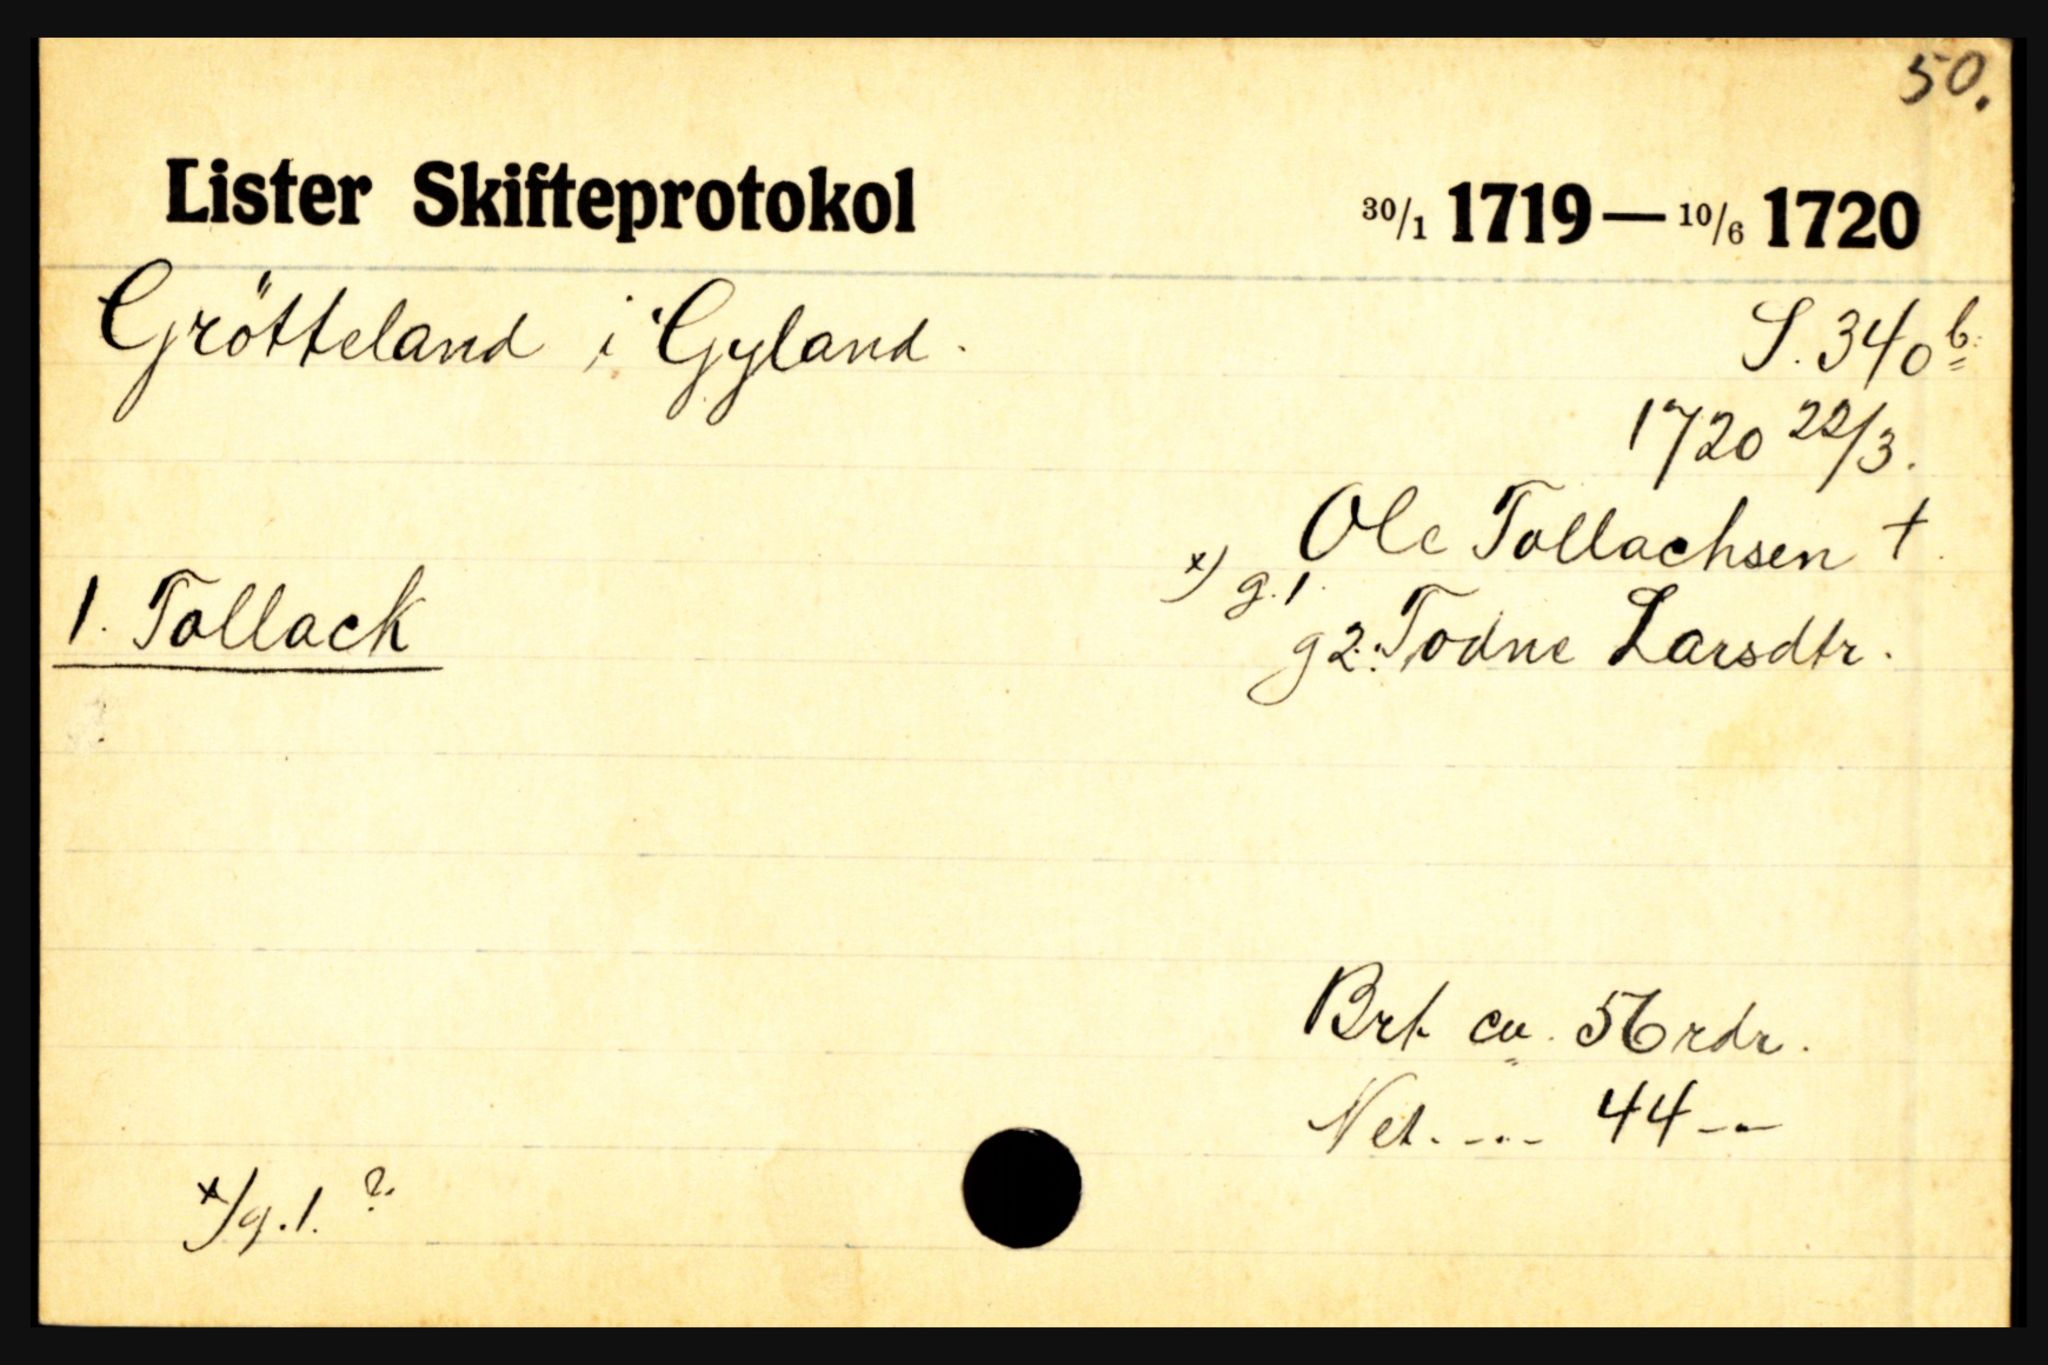 50.
Lister Skifteprotokol 30/1 1719 — 10/6 1720
Grötteland i Gyland. S. 340 b.
1720 22/3.
Ole Tollachsen †.
x) g. 1.
1. Tollack g 2: Todne Larsdtr.
Brt ca. 56 rdr.
Net. -.-- 44 --
x) g. 1. ?